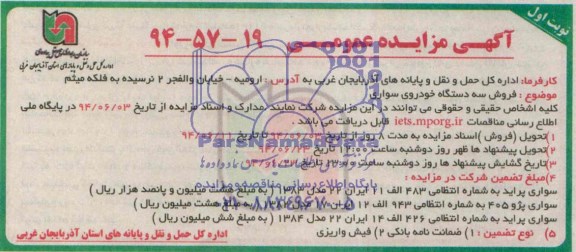 نوبت اول
آگهی مزایده عمومی ۱۹-۵۷-۹۴
اداره کل حمل و نقل و پایانه های استان آذربایجان غربی
کارفرما: اداره کل حمل و نقل و پایانه های آذربایجان غربی به آدرس : ارومیه - خیابان والفجر ۲ نرسیده به فلکه میثم
موضوع : فروش سه دستگاه خودروی سواری
کلیه اشخاص حقیقی و حقوقی می توانند در این مزایده شرکت نمایند مدارک و اسناد مزایده از تاریخ ۹۴/۰۶/۰۳ در پایگاه ملی
اطلاع رسانی مناقصات iets.mporg.ir قابل دریافت می باشد .
۱) تحویل (فروش) اسناد مزایده به مدت ۸ روز از تاریخ تا تاریخ
۲) تحویل پیشنهاد ها ظهر روز دوشنبه ساعت
۳) تاریخ گشایش پیشنهاد ها روز دوشنبه ساعت
۴) مبلغ تضمین شرکت در مزایده :
سواری پراید به شماره انتظامی ۴۸۳ الف ۲۱ ایران ۲۲ مدل ۱۳۸۳ ( به مبلغ هشت میلیون و پانصد هزار ریال)
سواری پژو ۴۰۵ به شماره انتظامی ۹۴۳ الف ۱۲ ایران مبلغ هشت میلیون ریال)
سواری پراید به شماره انتظامی ۴۲۶ الف ۱۴ ایران ۲۲ مدل ۱۳۸۴ ( به مبلغ شش میلیون ریال )
۵) نوع تضمین : ۱) ضمانت نامه بانکی ۲) فیش واریزی
اداره کل حمل و نقل و پایانه های استان آذربایجان غربی
ParsNamadData
پایگاه اطلاع رسانی مناقصه و مزایده
۰۲۱-۸۸۳۴۹۶۷۰-۵